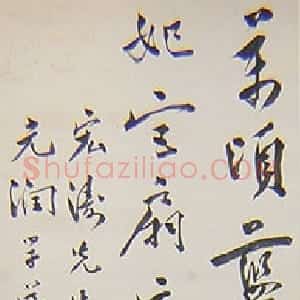 萬頃藍
宮扇
宏濤先
元潤
Shufaziliao.com